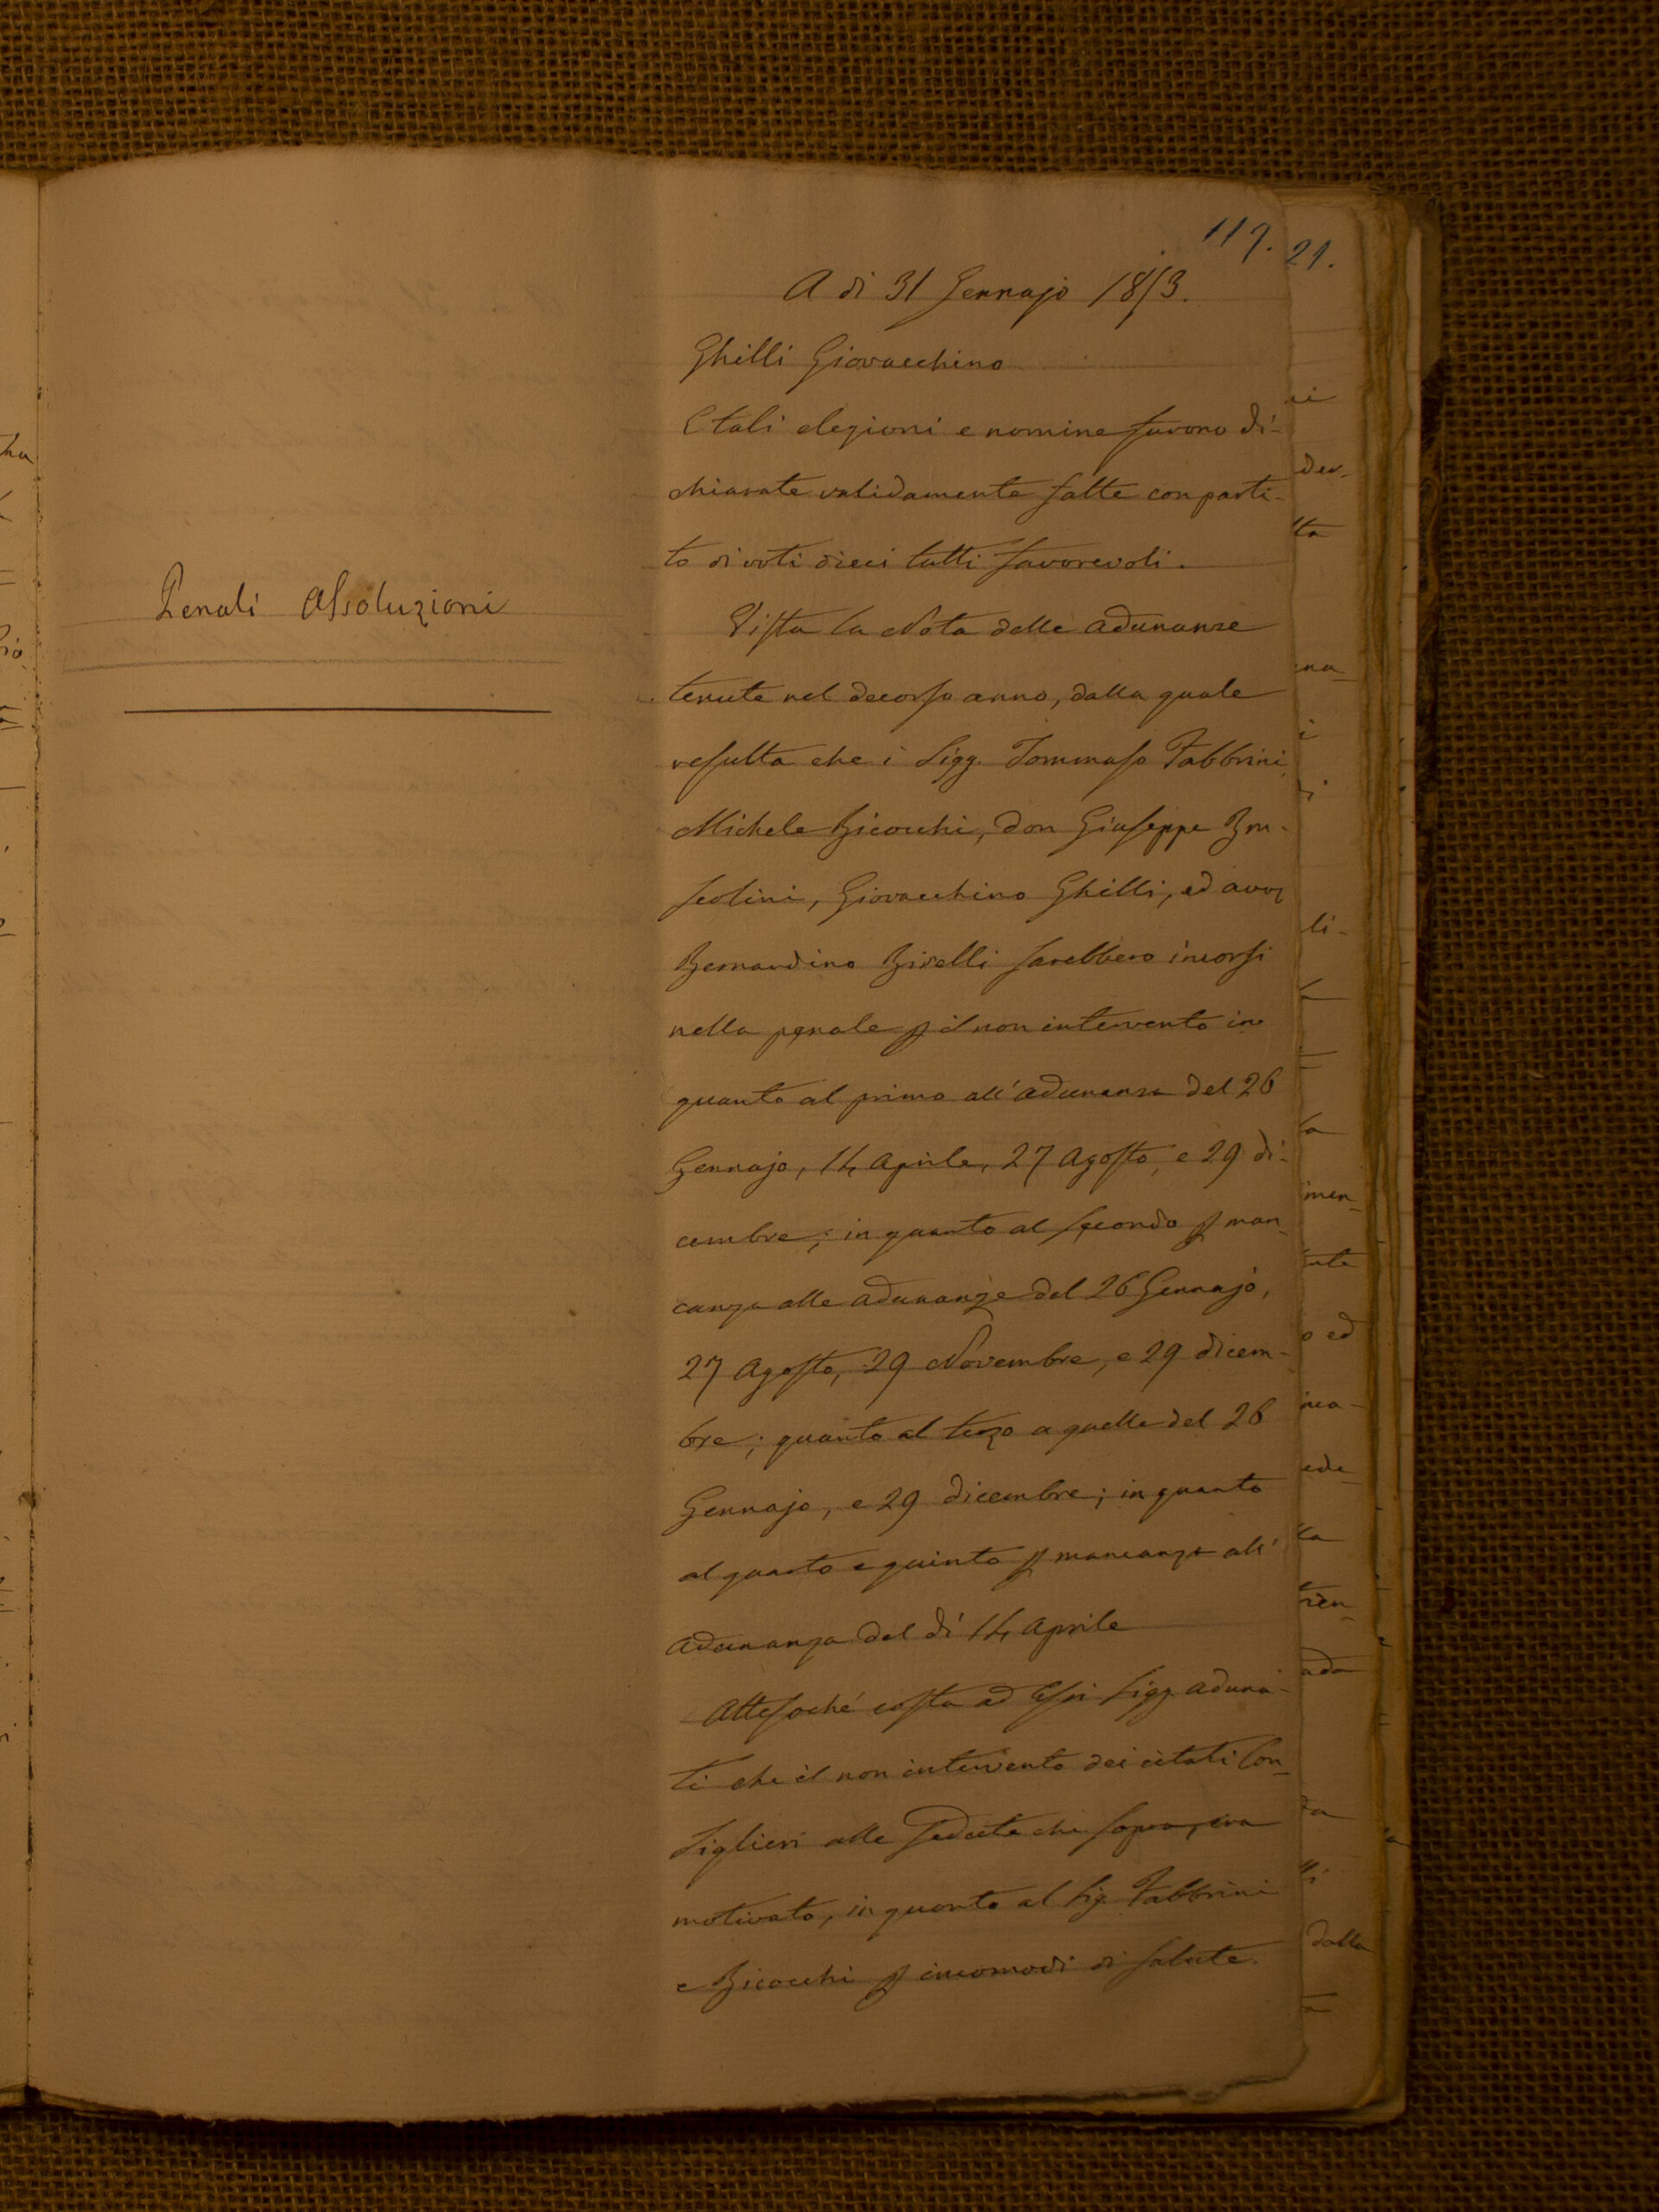 117. 21.
A dì 31 Gennajo 1853.
Ghilli Giovacchino
E tali elezioni e nomine furono di-
chiarate validamente fatte con parti-
to di voti dieci tutti favorevoli.
Penali Assoluzioni
Vista la Nota delle adunanze
tenute nel decorso anno, dalla quale
resulta che i Sigg. Tommaso Fabbrini
Michele Bicocchi, Don Giuseppe Bru-
scolini, Giovacchino Ghilli, ed
Bernardino sarebbero incorsi
nella penale p il non intervento in
quanto al primo all'adunanza del 26
Gennajo, 14 Aprile, 27 Agosto, e 29 di-
cembre; in quanto al secondo p man-
canza alle adunanze del 26 Gennajo,
27 Agosto, 29 Novembre, e 29 dicem-
bre; quanto al terzo a quelle del 26
Gennajo, e 29 dicembre; in quanto
al quarto e quinto p mancanza all'
adunanza del dì 14 Aprile
Attesoché costa ad Essi Sigg. aduna-
ti che il non intervento dei citati Con-
siglieri alle sedute che sopra, era
motivato, in quanto al Sig. Fabbrini
e Bicocchi p incomodi di salute.